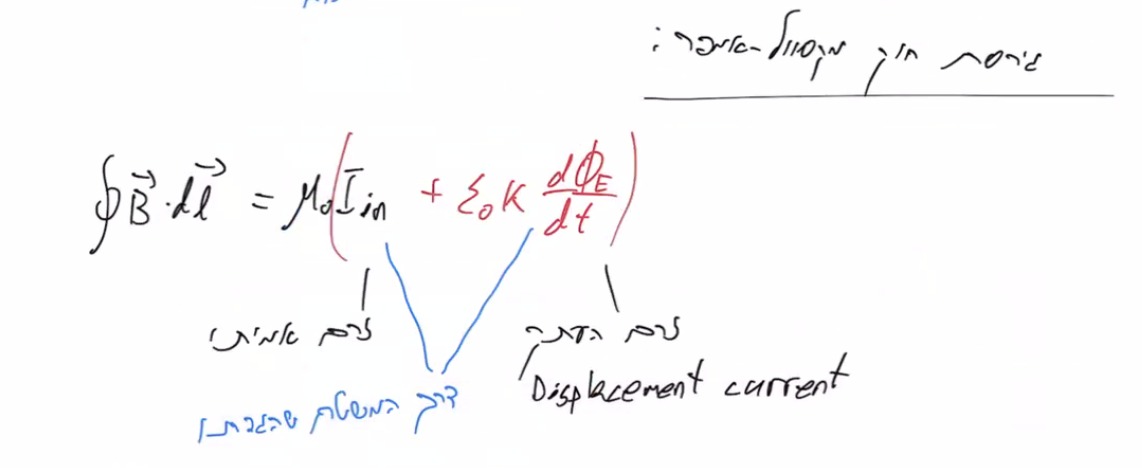 גירסת חוק מקסוול-אמפר:
∮B⃗·dl⃗ = μ₀(I_in + ε₀K dΦ_E/dt)
זרם אמיתי
זרם העתק
Displacement current
דרך המשטח שהגדרתי